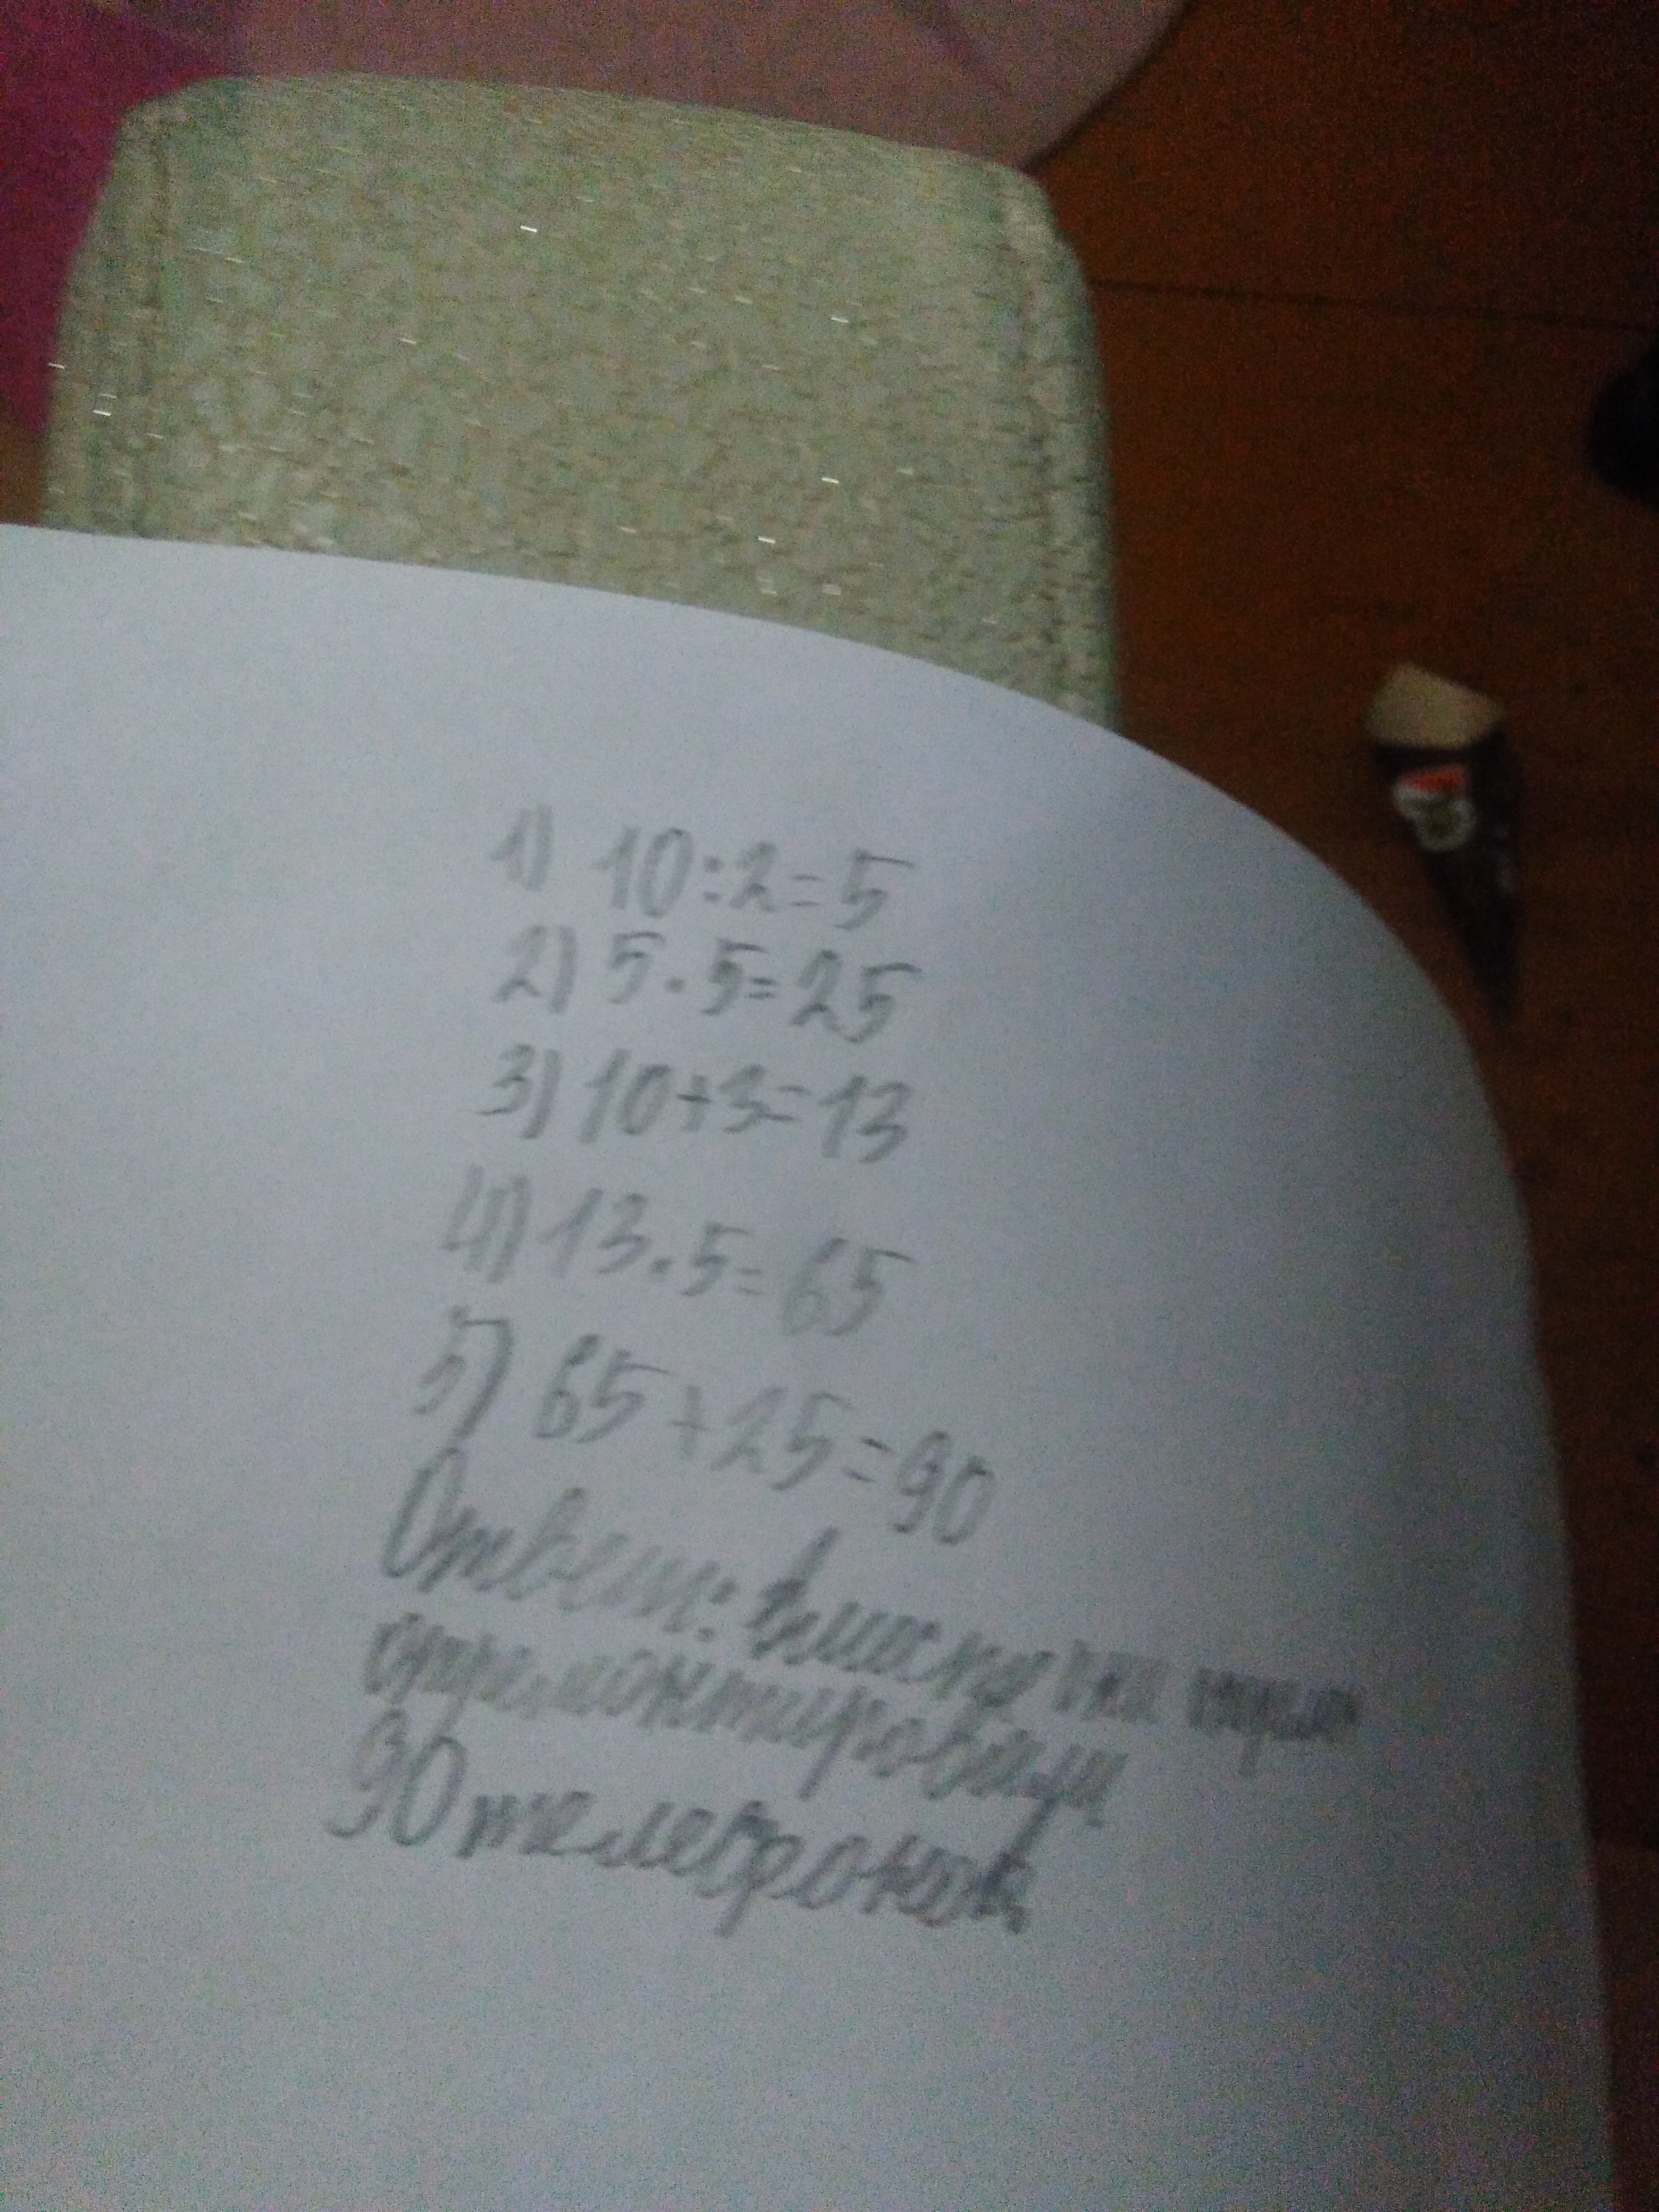 1) 10:2=5
2) 5·5=25
3) 10+3=13
4) 13·5=65
5) 65+25=90
Ответ:
отремонтировали
90 телефонов.